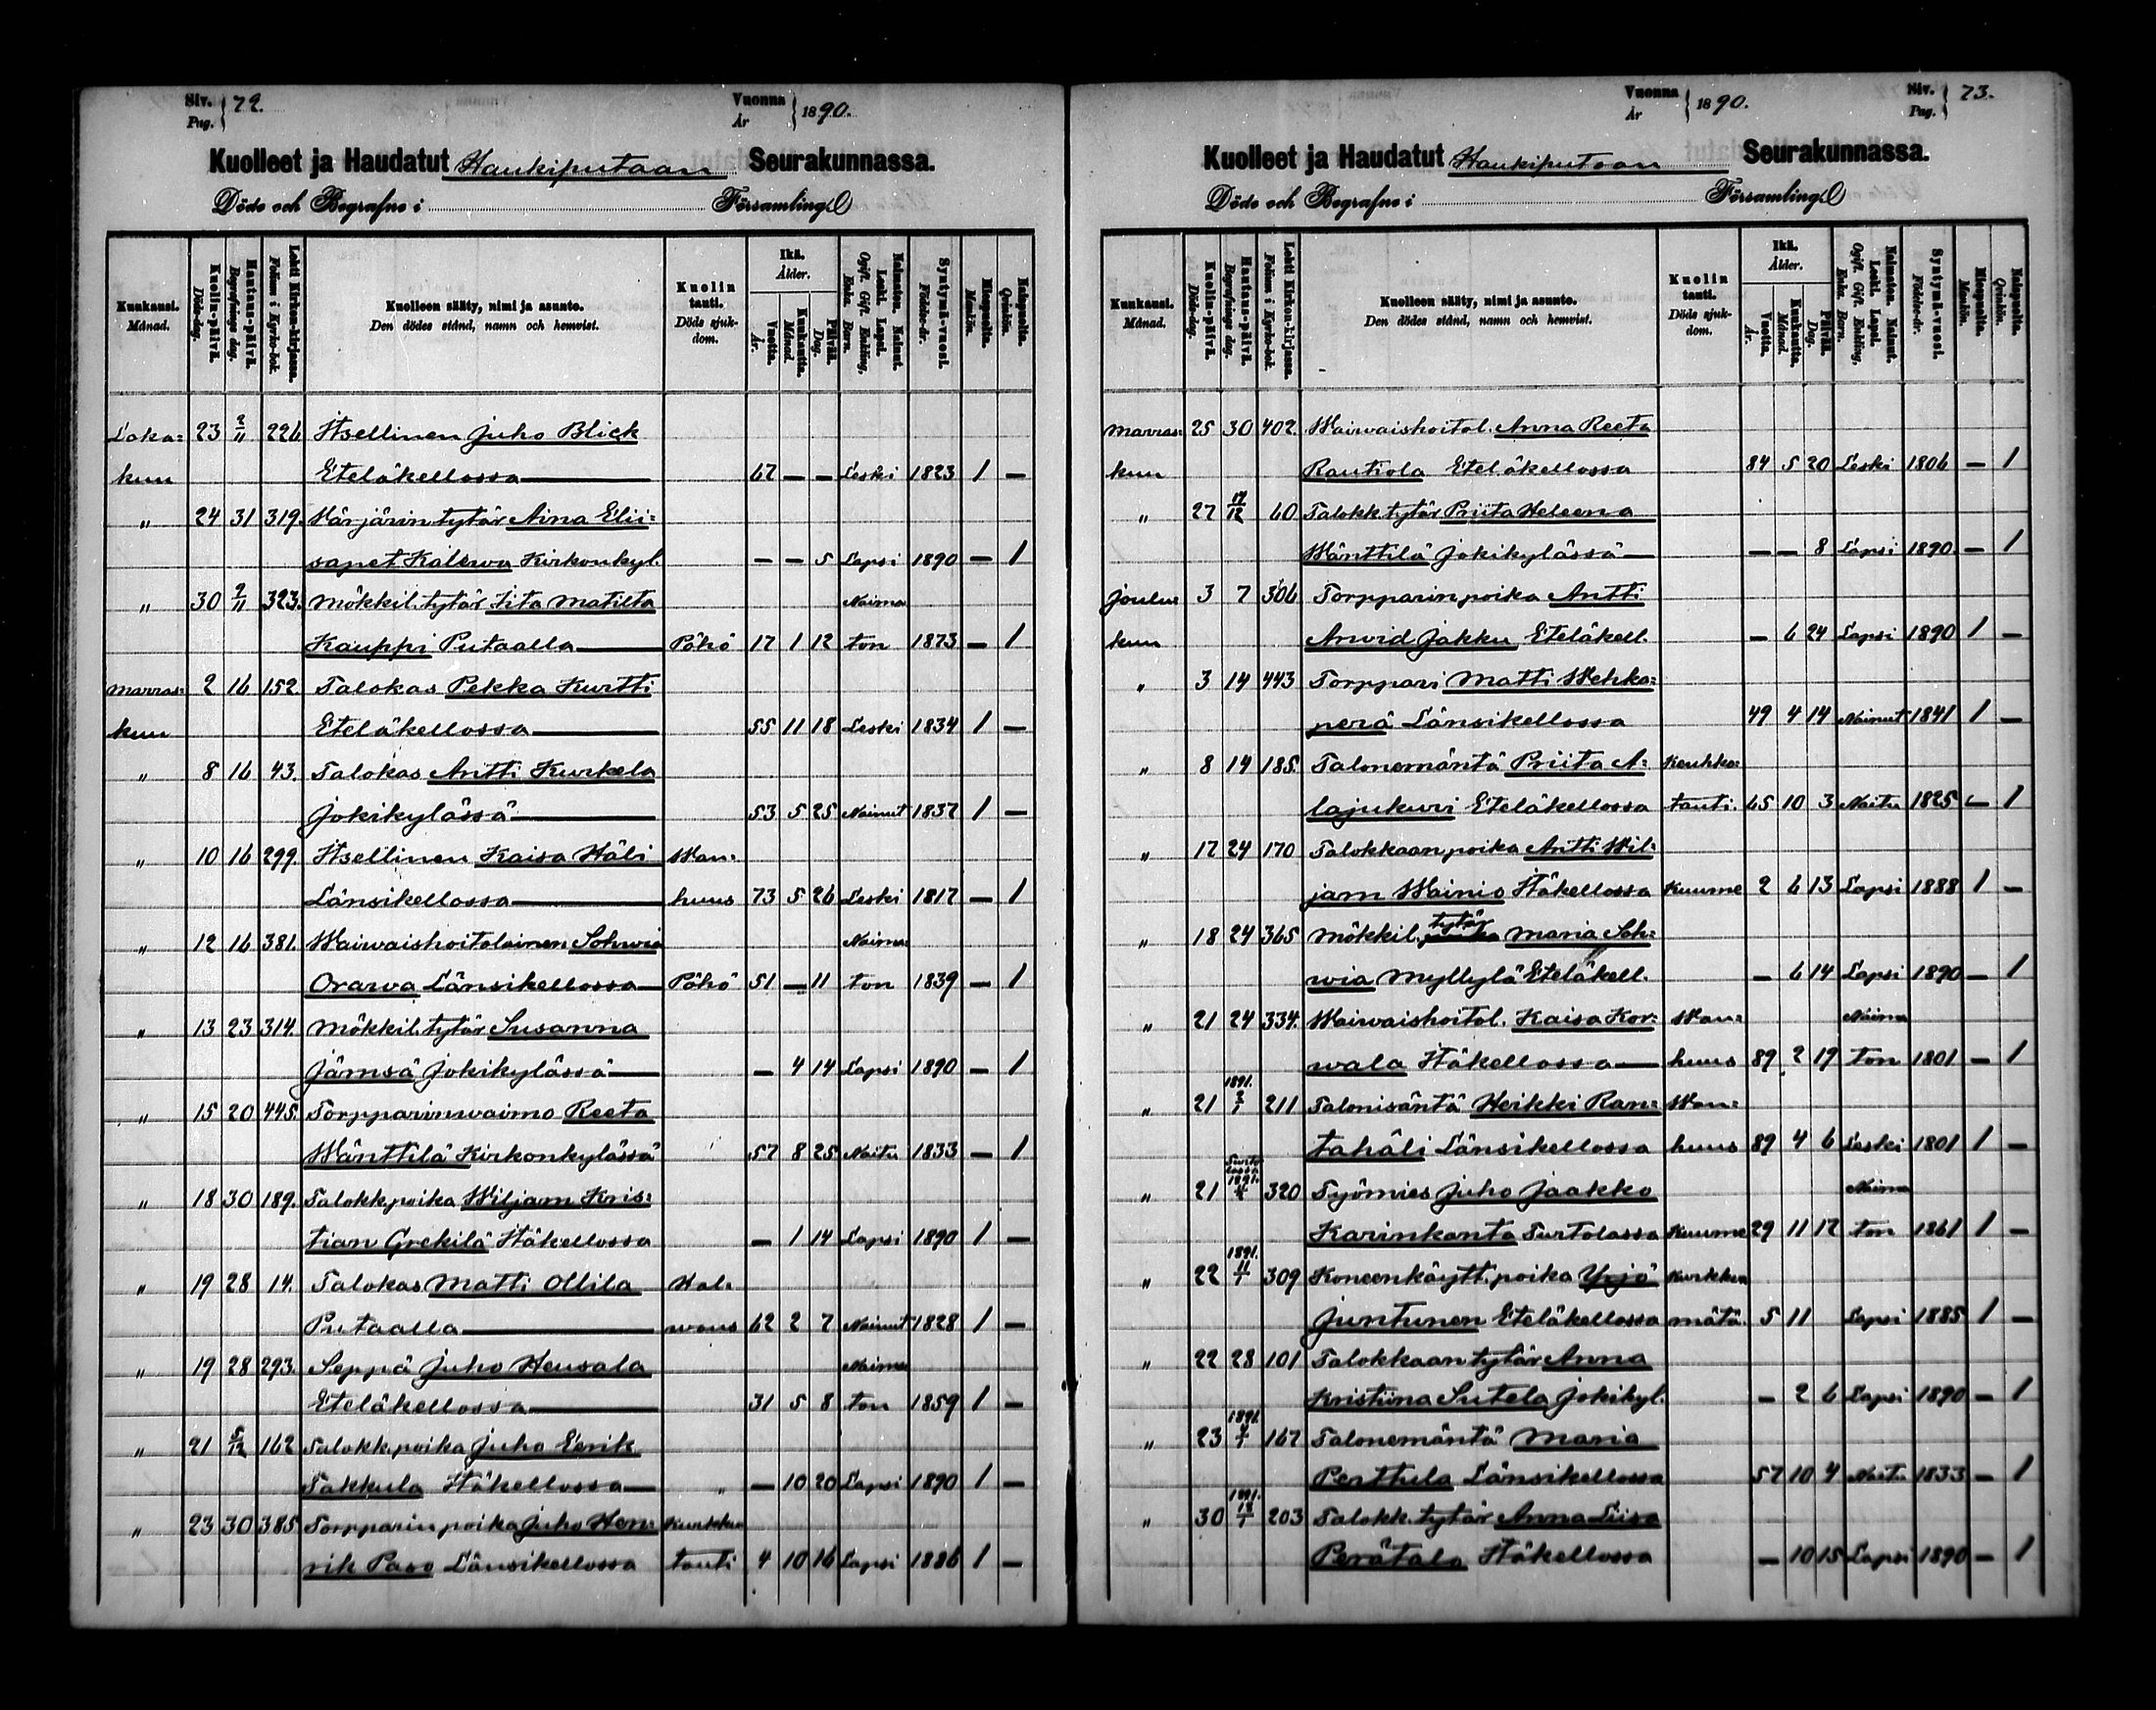 Siv. Pag. } 72. Vuonna År } 1890.
Kuolleet ja Haudatut Haukiputaan Seurakunnassa.
Döde och Begrafne i Församling
Kuukausi. Månad. Kuolin-päivä. Döds-dag. Hautaus-päivä. Begrafnings dag. Lehti Kirkon-kirjassa. Folium i Kyrko-bok. Kuolleen sääty, nimi ja asunto. Den dödes stånd, namn och hemvist. Kuolin tauti. Döds sjukdom. Ikä. Ålder. Vuotta. År. Kuukautta. Månad. Päivää. Dag. Naimaton. Nainut. Leski. Lapsi. Ogift. Gift. Enkling, Enka. Barn. Syntymä-vuosi. Födelse-år. Miespuolta. Mankön. Naispuolta. Qvinkön.
Loka= 23 2/11 226 Itsellinen Juho Blick
kuu Eteläkellossa 67 — — Leski 1823 1 —
" 24 31 319. Värjärin tytär Aina Elii=
sapet Kalewa Kirkonkyl. — — 5 Lapsi 1890 — 1
" 30 2/11 323. Mökkil. tytär Iita Matilta Naima
Kauppi Putaalla Pöhö 17 1 12 ton 1873 — 1
Marras= 2 16 152. Talokas Pekka Kurtti
kuu Eteläkellossa 55 11 18 Leski 1834 1 —
" 8 16 43. Talokas Antti Kurkela
Jokikylässä 53 5 25 Nainut 1837 1 —
" 10 16 299. Itsellinen Kaisa Häli Wan=
Länsikellossa huus 73 5 26 Leski 1817 — 1
" 12 16 381. Waiwaishoitolainen Sohwia Naima
Orawa Länsikellossa Pöhö 51 — 11 ton 1839 — 1
" 13 23 314. Mökkil. tytär Susanna
Jämsä Jokikylässä — 4 14 Lapsi 1890 — 1
" 15 20 445. Torpparinwaimo Reeta
Wänttilä Kirkonkylässä 57 8 25 Naitu 1833 — 1
" 18 30 189. Talokk. poika Wiljam Kris=
tian Grekilä Itäkellossa — 1 14 Lapsi 1890 1 —
" 19 28 14. Talokas Matti Ollila Hal=
Putaalla waus 62 2 7 Nainut 1828 1 —
" 19 28 293. Seppä Juho Heusala Naima
Eteläkellossa 31 5 8 ton 1859 1 —
" 21 5/12 162 Talokk. poika Juho Eerik
Takkula Itäkellossa " — 10 20 Lapsi 1890 1 —
" 23 30 385 Torpparin poika Juho Hen= Kurkku
rik Paso Länsikellossa tauti 4 10 16 Lapsi 1886 1 —
Vuonna År } 1890. Siv. Pag. } 73.
Kuolleet ja Haudatut Haukiputaan Seurakunnassa.
Döde och Begrafne i Församling
Kuukausi. Månad. Kuolin-päivä. Döds-dag. Hautaus-päivä. Begrafnings dag. Lehti Kirkon-kirjassa. Folium i Kyrko-bok. Kuolleen sääty, nimi ja asunto. Den dödes stånd, namn och hemvist. Kuolin tauti. Döds sjukdom. Ikä. Ålder. Vuotta. År. Kuukautta. Månad. Päivää. Dag. Naimaton. Nainut. Leski. Lapsi. Ogift. Gift. Enkling, Enka. Barn. Syntymä-vuosi. Födelse-år. Miespuolta. Mankön. Naispuolta. Qvinkön.
Marras= 25 30 402. Waiwaishoitol. Anna Reeta
kuu Rautiola Eteläkellossa 84 5 20 Leski 1806 — 1
" 27 14/12 60 Talokk. tytär Priita Heleena
Wänttilä Jokikylässä — — 8 Lapsi 1890 — 1
Joulu= 3 7 306 Torpparin poika Antti
kuu Arwid Jakku Eteläkell. — 6 24 Lapsi 1890 1 —
" 3 14 443 Torppari Matti Wehka=
perä Länsikellossa 49 4 14 Nainut 1841 1 —
" 8 14 185. Talonemäntä Priita A= Keuhko=
lajukuri Eteläkellossa tauti. 65 10 3 Naitu 1825 — 1
" 17 24 170 Talokkaan poika Antti Wil=
jam Wainio Itäkellossa Kuume 2 6 13 Lapsi 1888 1 —
" 18 24 365 Mökkil. tytär Maria Soh=
wia Myllylä Eteläkell. — 6 14 Lapsi 1890 — 1
" 21 24 334. Waiwaishoitol. Kaisa Kor= Wan= Naima
wala Itäkellossa huus 89 2 19 ton 1801 — 1
" 21 1891. 2/1 211 Talonisäntä Heikki Ran= Wan=
tahäli Länsikellossa huus 89 4 6 Leski 1801 1 —
" 21 1891. 320 Työmies Juho Jaakko Naima
Karinkanta Turtolassa Kuume 29 11 17 ton 1861 1 —
" 22 1891. 11/1 309 Koneenkäytt. poika Yrjö Kurkku
Juntunen Eteläkellossa mätä. 5 11 Lapsi 1885 1 —
" 22 28 101 Talokkaan tytär Anna
Kristiina Sutela Jokikyl. — 2 6 Lapsi 1890 — 1
" 23 1891. 167 Talonemäntä Maria
Perttula Länsikellossa 57 10 4 Naitu 1833 — 1
" 30 1891. 18/1 203 Talokk. tytär Anna Liisa
Perätalo Itäkellossa — 10 15 Lapsi 1890 — 1